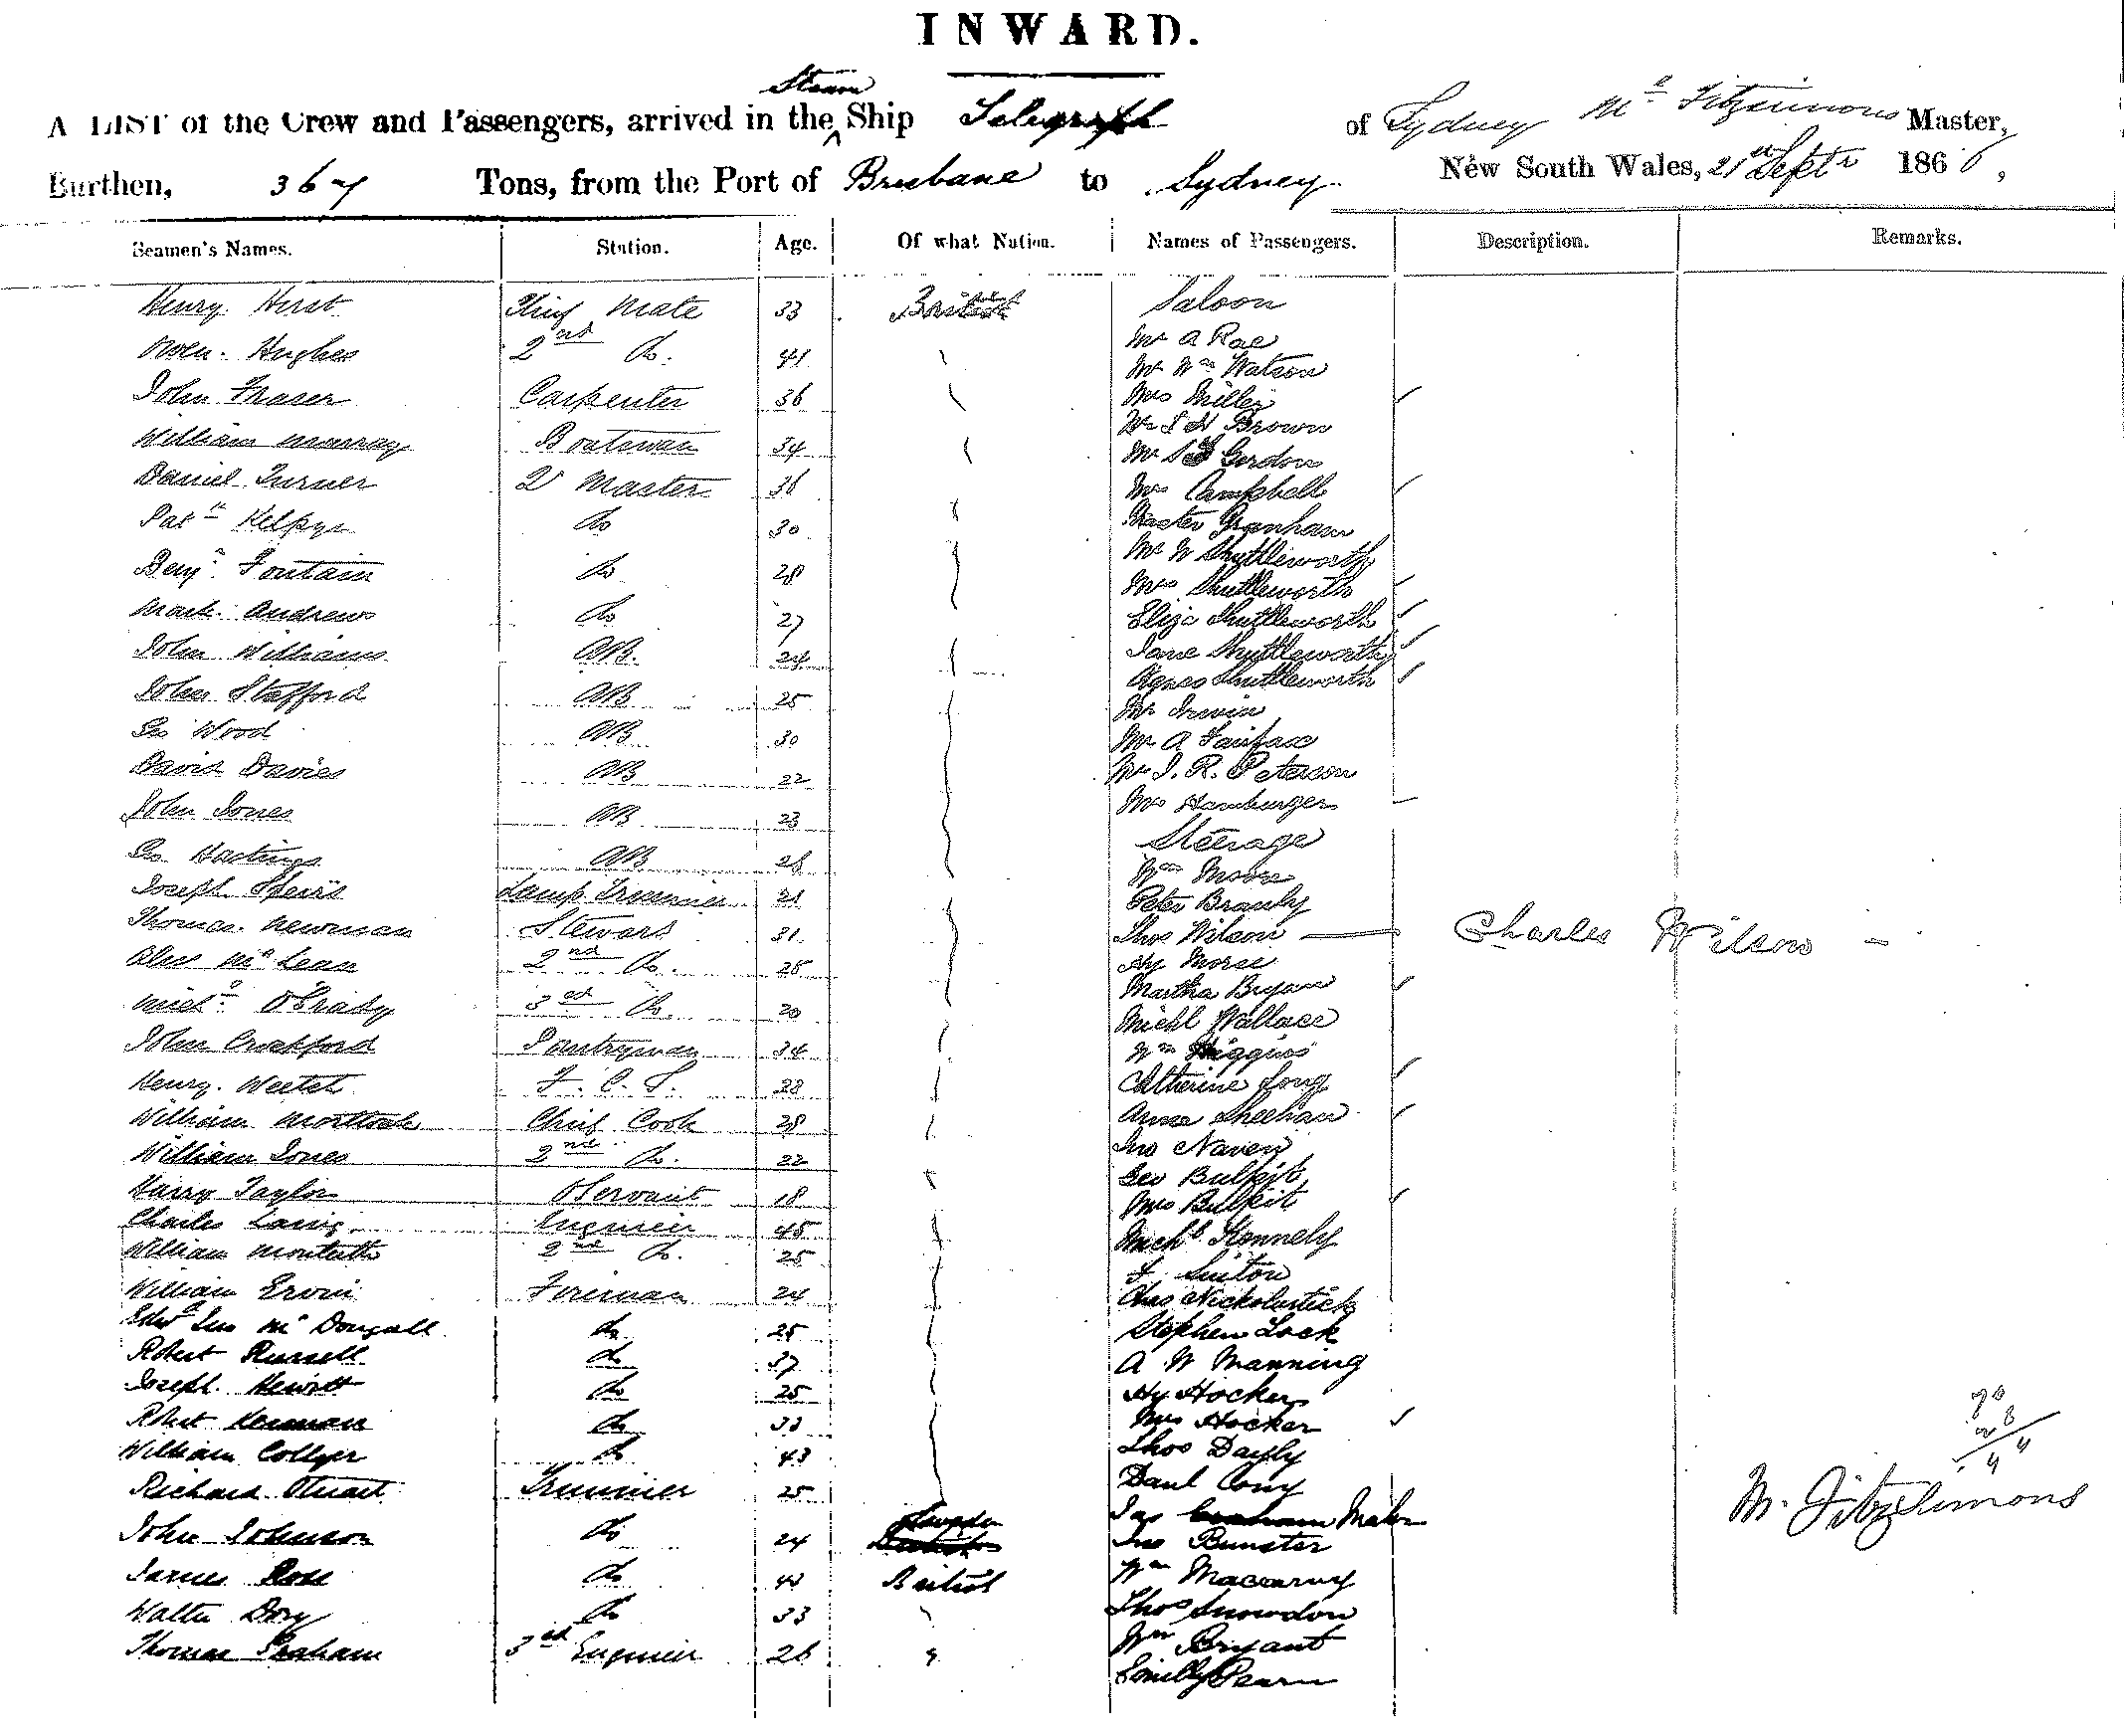 INWARD.
Steam
A LIST of the Crew and Passengers, arrived in the Ship Telegraph of Sydney Mr Fitzsimons Master,
Burthen, 367 Tons, from the Port of Brisbane to Sydney New South Wales, 21st Septr 1866,
Seamen's Names. Station. Age. Of what Nation. Names of Passengers. Description. Remarks.
Henry Hirst Chief Mate 33 British Saloon
Owen Hughes 2nd Do. 41 Mr A Rae
Mr Wm Watson
John Fraser Carpenter 36 Mrs Miller
William Murray Boatswain 34 Brown
Mr Gordon
Daniel Turner 2 Master 36 Mrs Campbell
Patk Do 30 Master Granham
Mr W Shuttleworth
Benjn Fountain Do 28 Mrs Shuttleworth
Mark Andrews Do 27 Eliza Shuttleworth
John Williams AB. 24 Jane Shuttleworth
Agnes Shuttleworth
John Stafford AB 25 Mr Irwin
Geo Wood AB 30 Mr A Fairfax
David Davies AB 22 Mr J. R. Peterson
John Jones AB 23 Mrs Hamburger
Steerage
Geo Hastings AB 28 Wm Moore
Joseph Speirs Lamp Trimmer 21 Peter Brauly
Thomas Newman Steward 31 Thos Wilson — Charles Wilson —
Alexr McLean 2nd Do. 25 Hy Morse
Michl O'Grady 3rd Do. 20 Martha Bryan
Michl Wallace
John Crockford Pantryman 34 Wm Higgins
Henry Weetch F. C. S. 38 Catherine Long
William Chief Cook 28 Anne Sheehan
William Jones 2nd Do. 22 Jno Naven
Geo Bulpit
Harry Taylor O Servant 18 Mrs Bulpit
Charles Laing Engineer 45 Michl Kennely
William Monteith 2nd Do. 25
William Ervin Fireman 24
Edwd Jno McDougall Do 25 Stephen Lock
Robert Russell Do 37 A W Manning
Joseph Hewitt Do 25 Hy Hocker
Robert Do 33 Mrs Hocker
William Collyer Do 43 Thos Dayly
Richard Stuart Trimmer 25 Danl Cony
Sweden Jas
John Johnson Do 24 Jno Bunster
M. Fitzsimons
James Ross Do British Wm
Walter Dory Do 33 Thos Snowdon
Thomas Graham 3rd Engineer 26 Wm Bryant
Emily Pearn